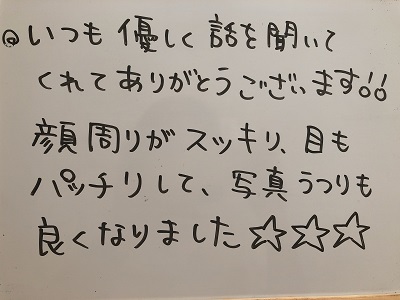 ◎いつも優しく話を聞いて
くれてありがとうございます!!
顔周りがスッキリ、目も
パッチリして、写真うつりも
良くなりました☆☆☆